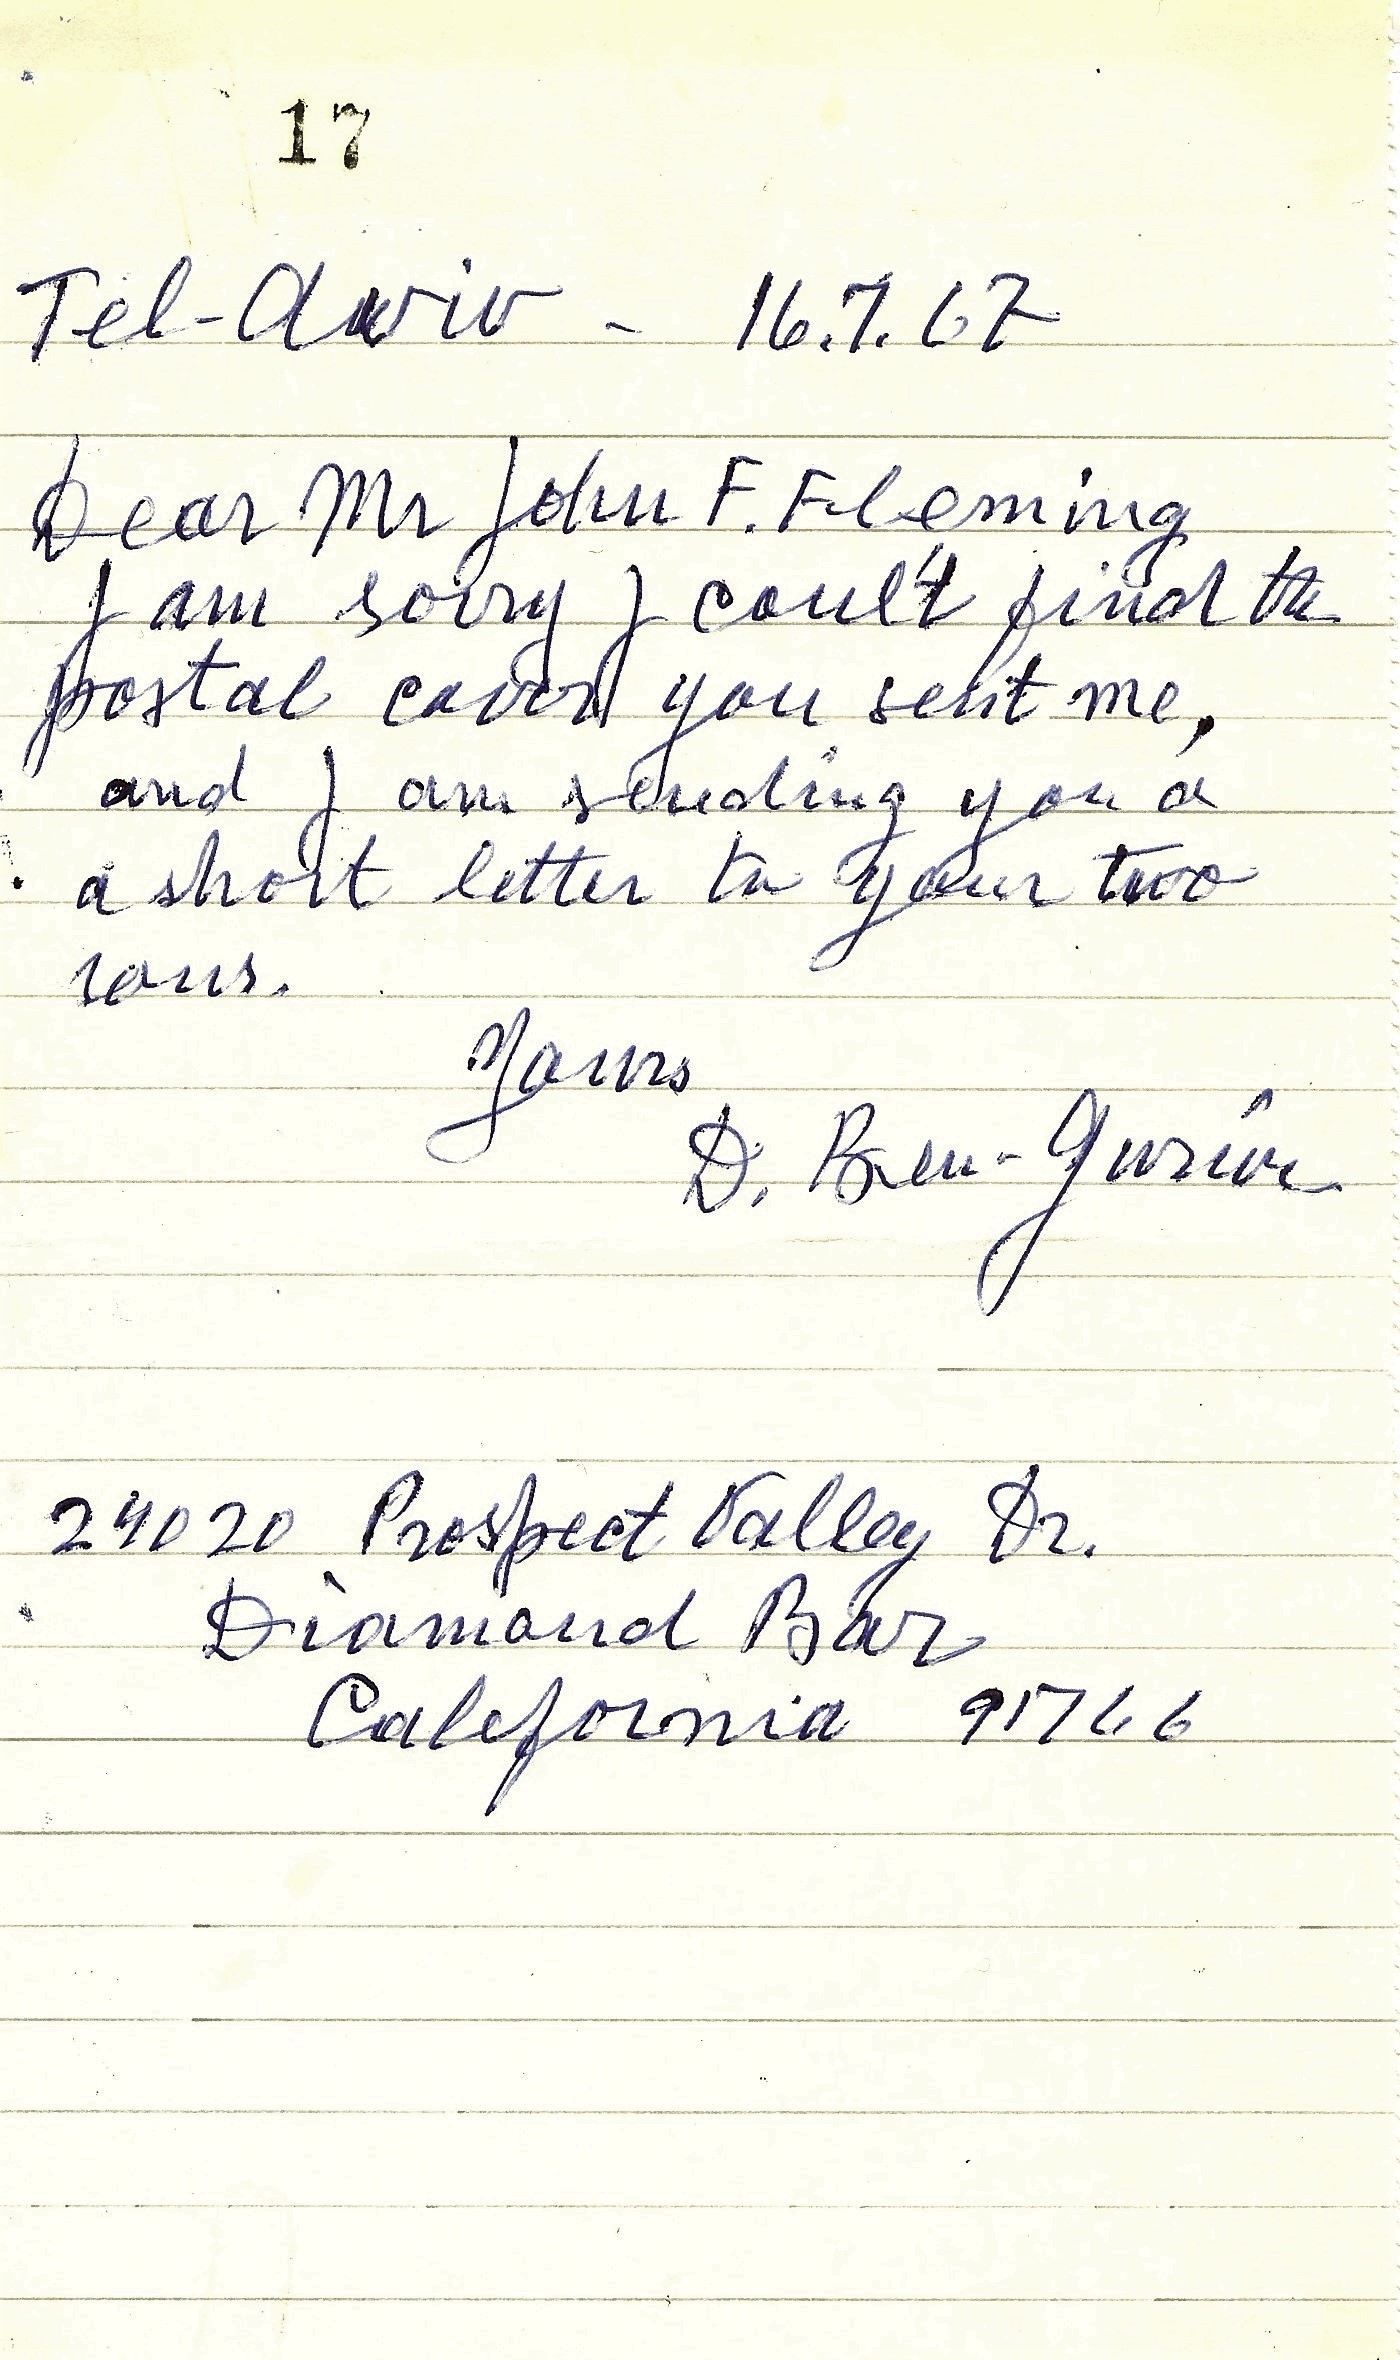 17
Tel-Aviv - 16.7.67
Dear Mr John F. Fleming
I am sorry I could't find the
postal cover you sent me,
and I am sending you a
a short letter to your two
sons.
Yours
D. Ben-Gurion
24020 Prospect Valley Dr.
Diamond Bar
California 91766